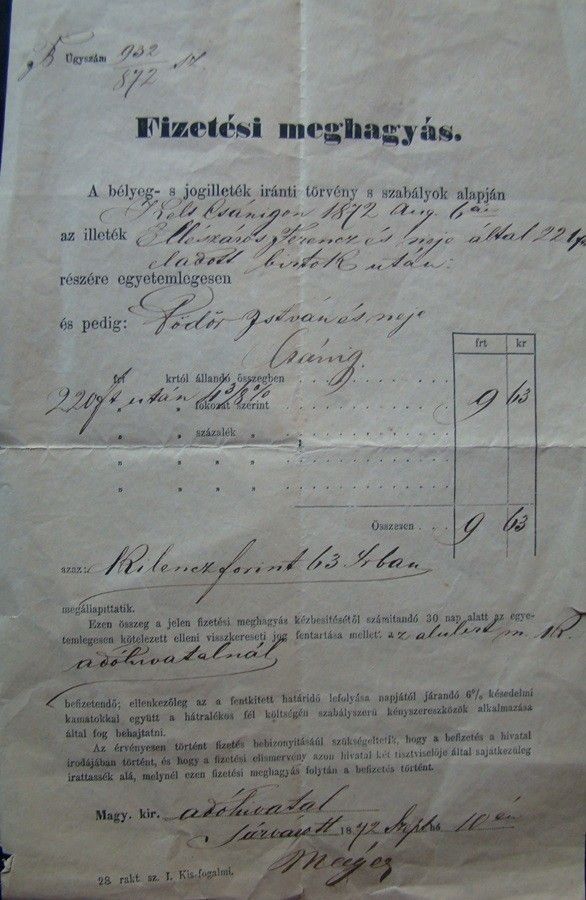 Ügyszám 932/872 sz.
Fizetési meghagyás.
A bélyeg- s jogilleték iránti törvény s szabályok alapján
Kelt Csánigon 1872 Aug. 6án
az illeték Elleszáros Ferencz és neje által 220
eladott birtok után:
részére egyetemlegesen
és pedig: Födőr István és neje
Csánig
frt kr
frt krtól állandó összegben
220 ft után 4 3/8 % fokozat szerint 9 63
" " százalék "
" " " "
" " " "
Összesen . . . 9 63
azaz: Kilencz forint 63 krban
megállapíttatik.
Ezen összeg a jelen fizetési meghagyás kézbesítésétől számitandó 30 nap alatt az egye-
temlegesen kötelezett elleni visszkereseti jog fentartása mellet: az alulirt m. kir.
adóhivatalnál
befizetendő; ellenkezőleg az a fentkitett határidő lefolyása napjától járandó 6% késedelmi
kamatokkal együtt a hátralékos fél költségén szabályszerű kényszereszközök alkalmazása
által fog behajtatni.
Az érvényesen történt fizetés bebizonyításáúl szükségeltetik, hogy a befizetés a hivatal
irodájában történt, és hogy a fizetési elismervény azon hivatal két tisztviselője által sajátkezüleg
irattassék alá, melynél ezen fizetési meghagyás folytán a befizetés történt.
Magy. kir. adóhivatal
Sárvárott 1872 Septbr 10 én
28 rakt sz. I. Kis-fogalmi.